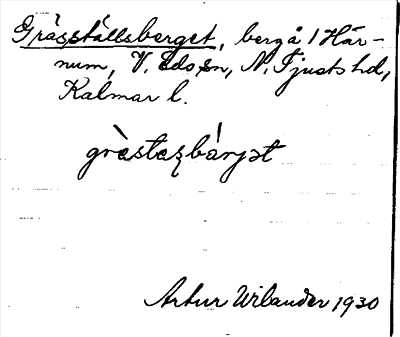 Grässtállsberget, berg å 1 Här-
num, V. Eds sn, N. Tjusts hd,
Kalmar l.
grèstasbárjət
Artur Wilander 1930